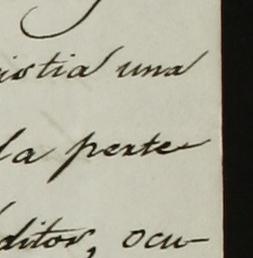 istia una
la perte
ditor, ocu-